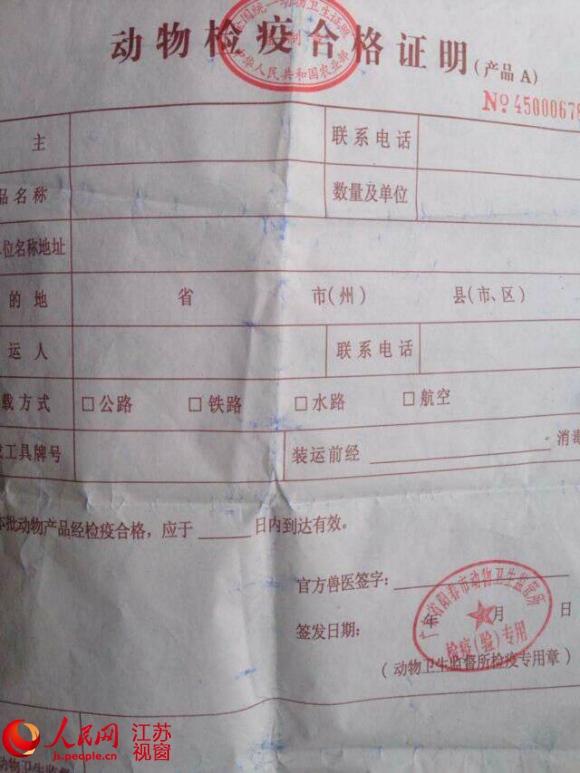 动物检疫合格证明(产品 A)
中华人民共和国农业部
№ 4500067
主 联系电话
品名称 数量及单位
位名称地址
的 地 省 市(州) 县(市、区)
运 人 联系电话
载方式 □公路 □铁路 □水路 □航空
工具牌号 装运前经 消毒
本批动物产品经检疫合格，应于 日内到达有效。
官方兽医签字：
签发日期： 年 月 日
广东省阳春市动物卫生监督所
检疫(验)专用
(动物卫生监督所检疫专用章)
人民网 江苏视窗
js.people.com.cn
动物卫生监督